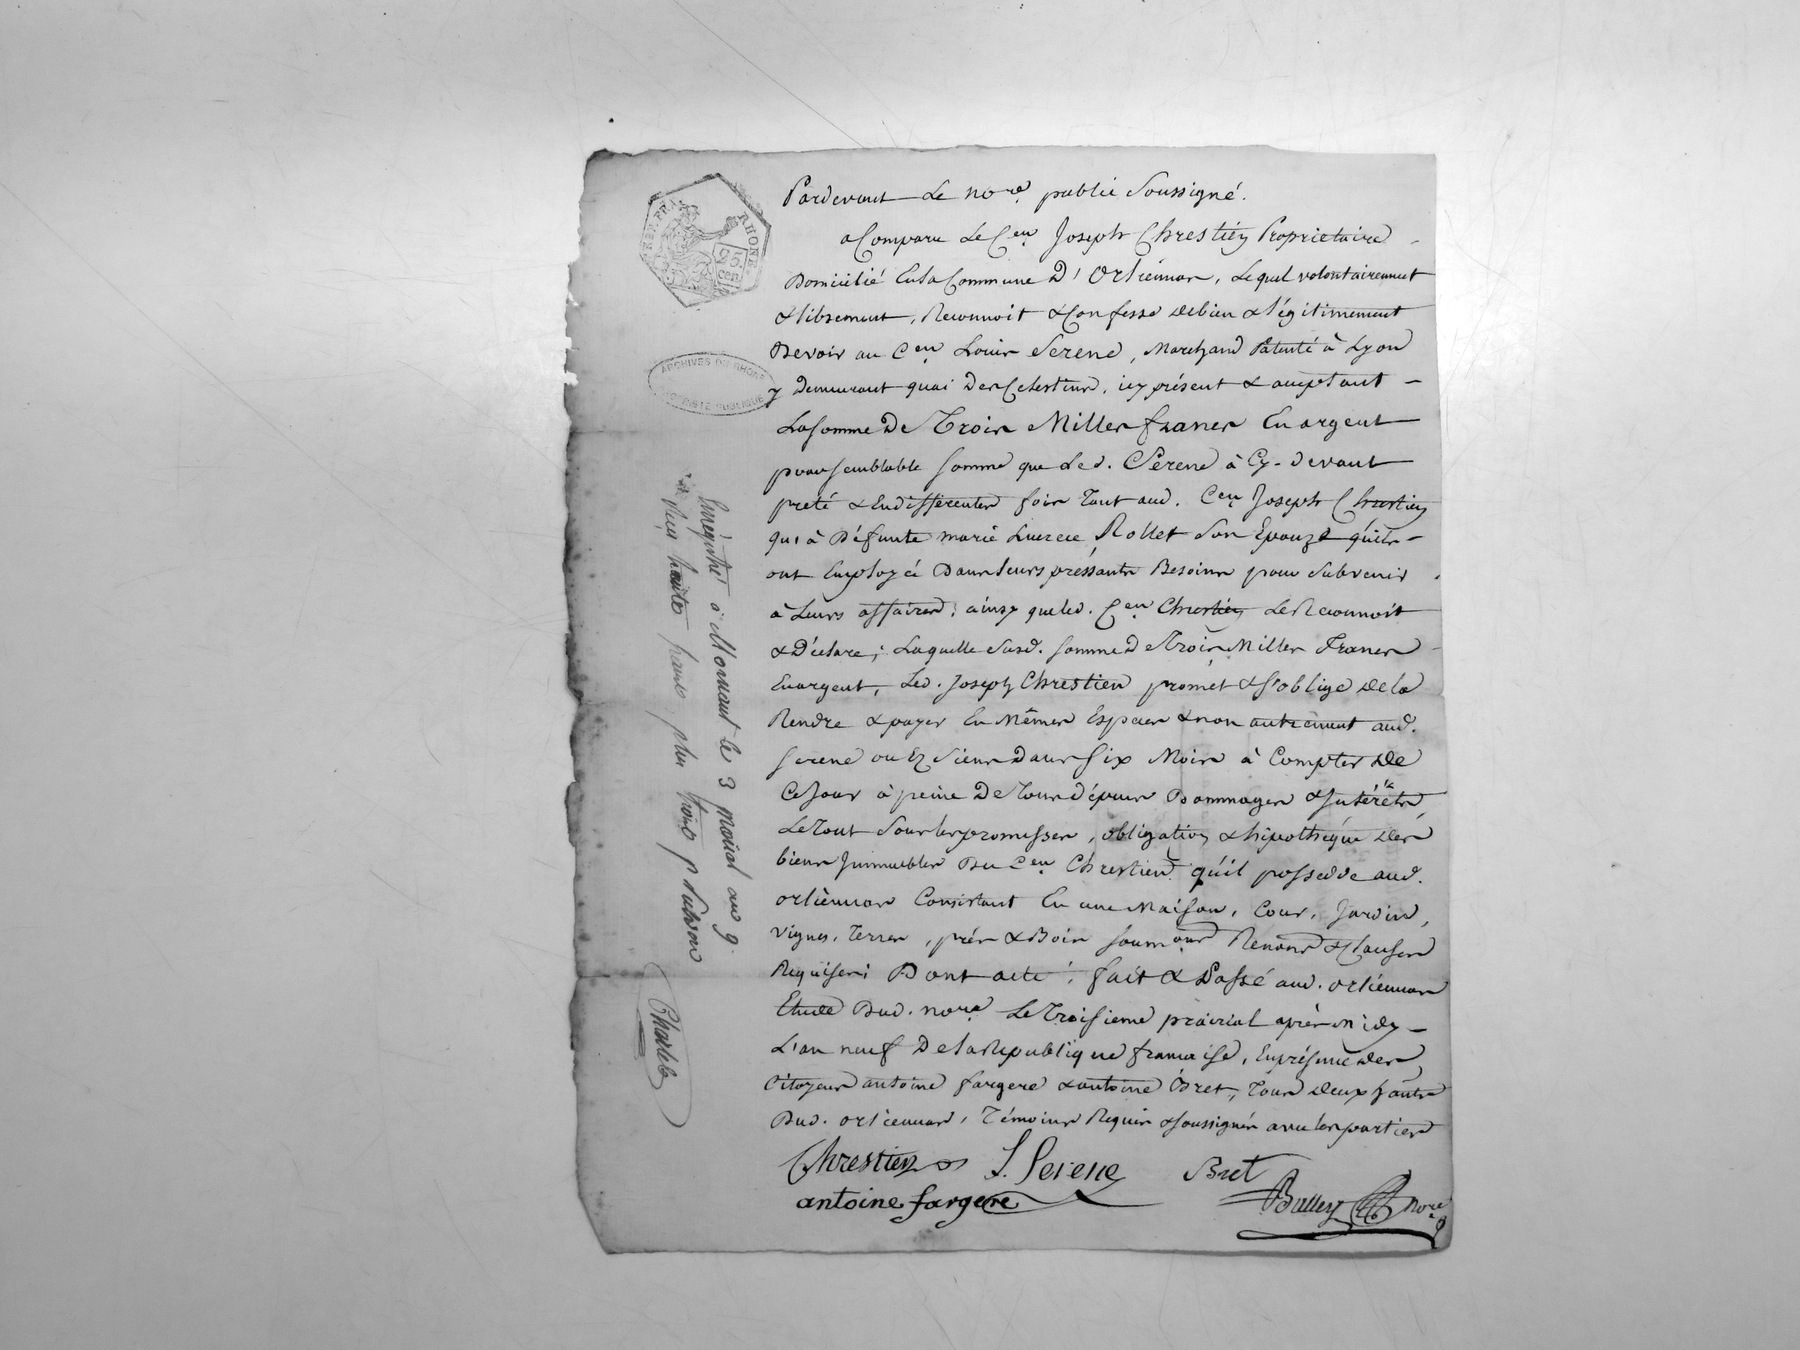 Pardevant Le no.re public Soussigné.
a Comparu Le C.en Joseph Chrestien Proprietaire
Domicilié En la Commune D'Orliénnas, Lequel volontairement
& librement, Reconnoit & Confesse de bien & légitimement
Devoir au C.en Louis Serene, Marchand Patenté à Lyon
y demeurant quai Des Celestins, icy présent & acceptant
La somme De Trois Milles francs En argent
pour semblable somme que Led. Serene à Cy-devant
preté & En differentes fois Tant aud. C.en Joseph Chrestien
qu'à Défunte marie Lucrece Rollet Son Epouze qu'ils
ont Employéé Dans leurs préssants Besoins pour Subvenir
à Leurs affaires; ainsy que led. C.en Chrestien Le Reconnoit
& Déclare; Laquelle Susd. somme De Trois Milles Francs
En argent, Led. Joseph Chrestien promet & s'oblige de la
Rendre & payer En Mêmes Espèces & non autrement aud.
Serene ou Ez Siens Dans Six Mois à Compter De
Ce Jour à peine De Tous dépens Dommages & Intérêts
Le Tout Sous les promesses, obligation & hipothéque des
biens Immeubles Du C.en Chrestien qu'il possedde aud.
orliénnas Consistant En une Maison, Cour, Jardin,
vignes, Terres, prés & Bois soumons Renons & Clauses
Requises; Dont acte; fait & Passé aud. orliénnas
Etude Dud. no.re Le Troisieme prairial après midy
L'an neuf De la Republique francaise, En présence des
Citoyens antoine fargere & antoine Bret, Tous deux
Dud. orliennas, Témoins Requis & soussignés avec les parties
Chrestien L. Serene Bret
antoine fargere Balley No.re
RHONE
25 cen
ARCHIVES DU RHONE
PROPRIETE PUBLIQUE
Enregistré à Mornant le 3 prairial an 9
reçu trente francs plus trois f. subvon
Charlet